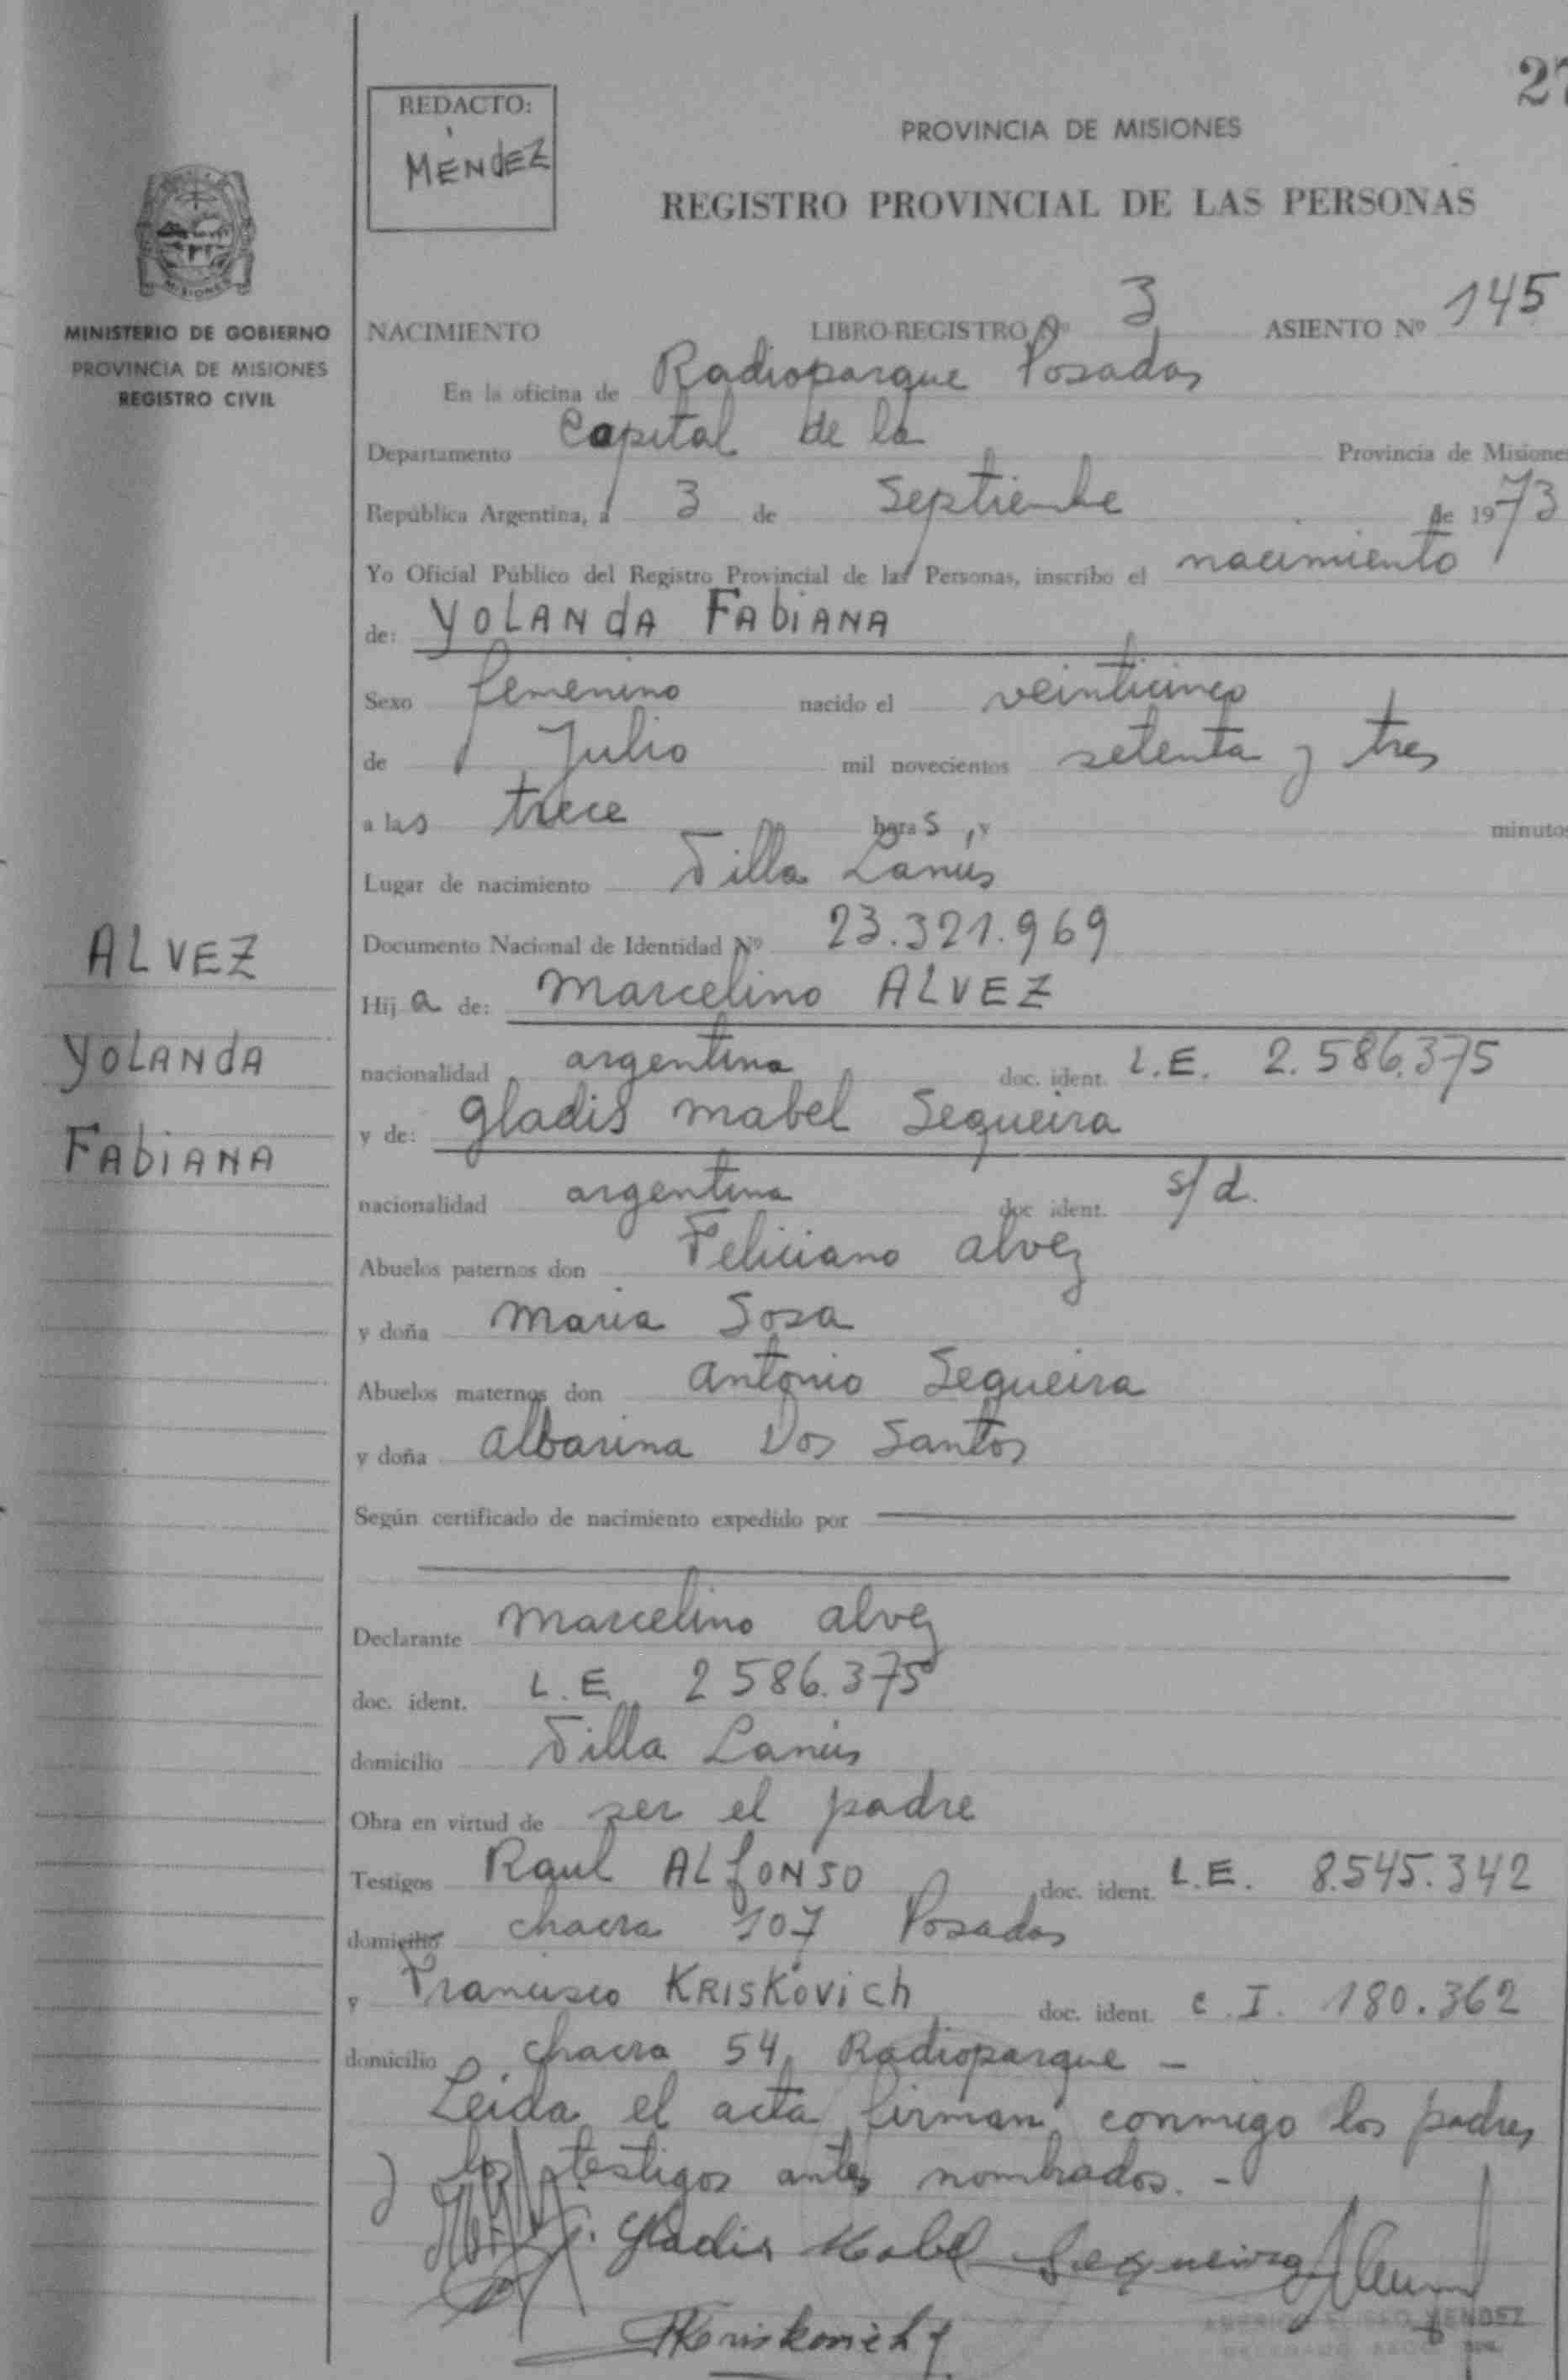 27
REDACTO:
MÉNDEZ
PROVINCIA DE MISIONES
REGISTRO PROVINCIAL DE LAS PERSONAS
MISIONES
MINISTERIO DE GOBIERNO
PROVINCIA DE MISIONES
REGISTRO CIVIL
NACIMIENTO LIBRO-REGISTRO Nº 3 ASIENTO Nº 145
En la oficina de Radioparque Posadas
Departamento Capital de la Provincia de Misiones
República Argentina, a 3 de Septiembre de 1973
Yo Oficial Público del Registro Provincial de las Personas, inscribo el nacimiento
de: YOLANDA FABIANA
Sexo femenino nacido el veinticinco
de Julio mil novecientos setenta y tres
a las trece horas, y minutos
Lugar de nacimiento Villa Lanús
Documento Nacional de Identidad Nº 23.321.969
Hija de: Marcelino ALVEZ
nacionalidad argentina doc. ident. L.E. 2.586.375
y de: Gladis Mabel Sequeira
nacionalidad argentina doc ident. s/d.
Abuelos paternos don Feliciano Alvez
y doña Maria Sosa
Abuelos maternos don Antonio Sequeira
y doña Albarina Dos Santos
Según certificado de nacimiento expedido por
Declarante Marcelino Alvez
doc. ident. L.E. 2586.375
domicilio Villa Lanús
Obra en virtud de ser el padre
Testigos Raul ALFONSO doc. ident. L.E. 8.545.342
domicilio chacra 107 Posadas
y Francisco KRISKOVICH doc. ident. C.I. 180.362
domicilio chacra 54 Radioparque -
Leida el acta firman conmigo los padres
y los testigos antes nombrados. -
Gladis Mabel Sequeira
Kriskovich
MENDEZ
ALVEZ
YOLANDA
FABIANA